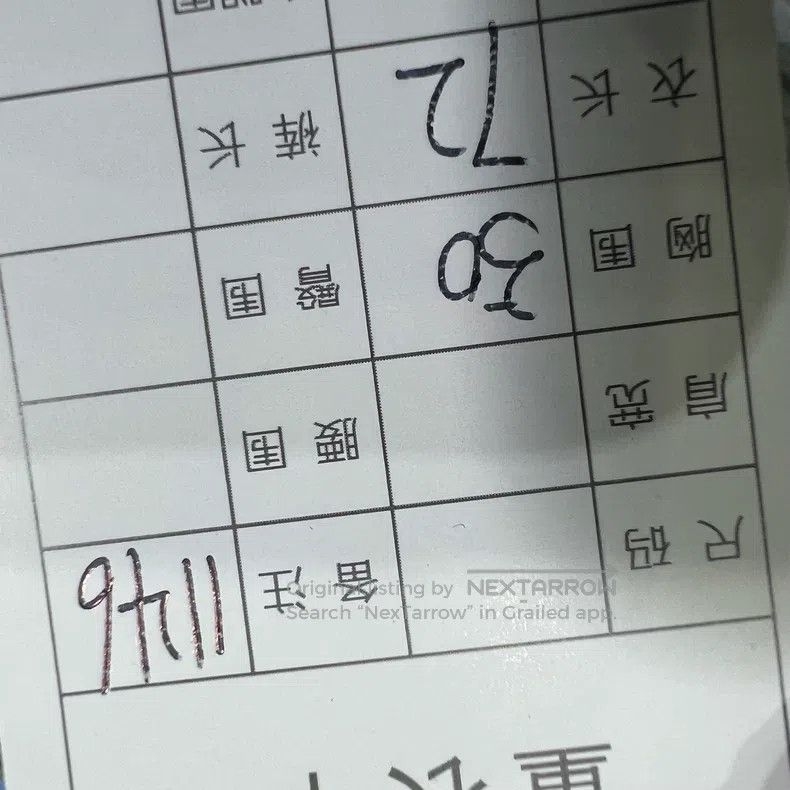 尺码 备注 1146
肩宽 腰围
胸围 50 臀围
衣长 72 裤长
Original listing by NEXTARROW
Search "NexTarrow" in Grailed app.